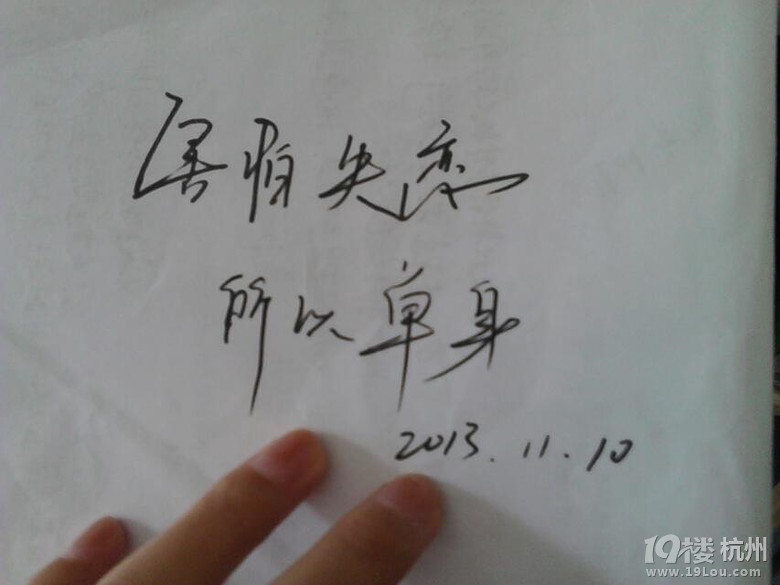 害怕失恋
所以单身
2013.11.10
19楼 杭州
www.19Lou.com